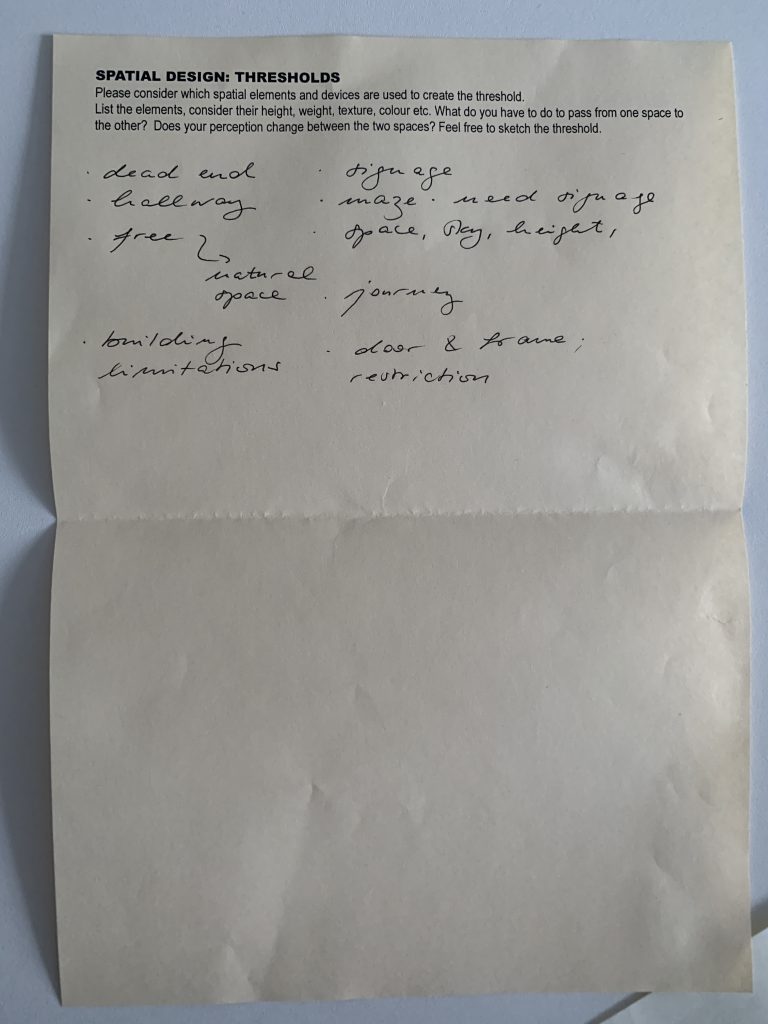 SPATIAL DESIGN: THRESHOLDS
Please consider which spatial elements and devices are used to create the threshold.
List the elements, consider their height, weight, texture, colour etc. What do you have to do to pass from one space to
the other? Does your perception change between the two spaces? Feel free to sketch the threshold.
· dead end
· hallway
· free
natural
space
· building
limitations
· signage
· maze · need signage
· space, sky, height,
· journey
· door & frame;
restriction